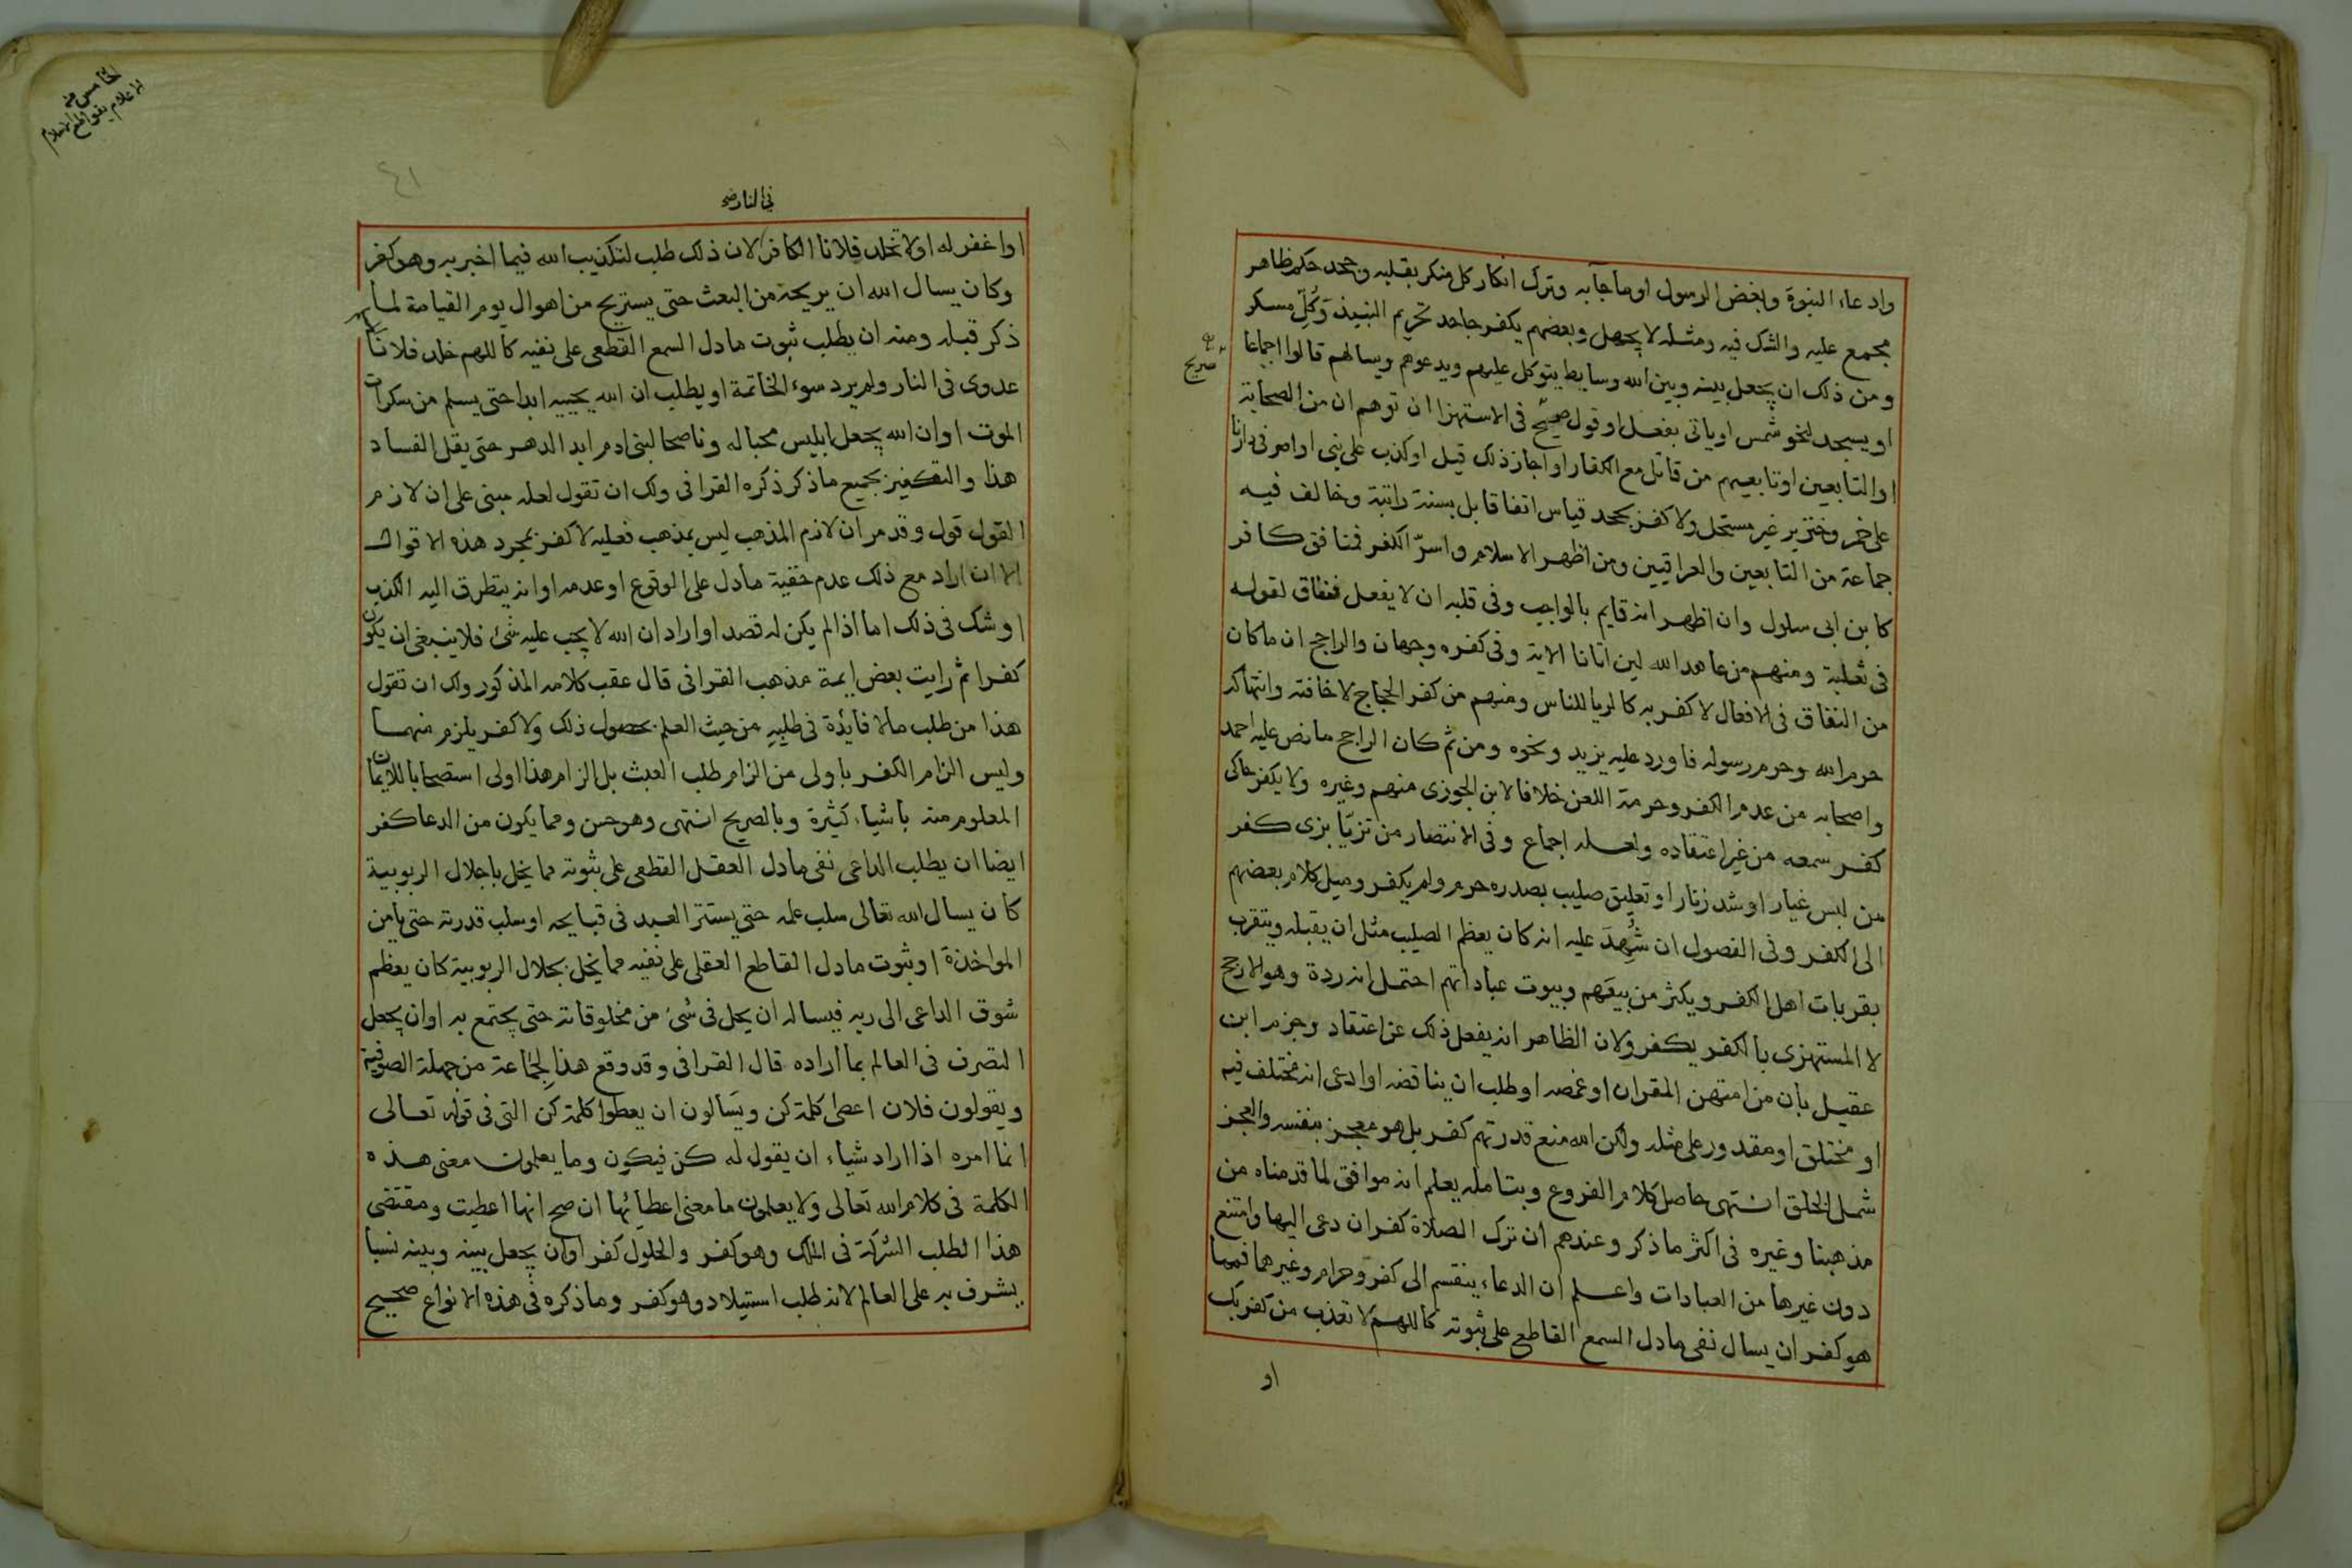 وادعاء النبوة وبغض الرسول اوما جآ به وترك انكار كل منكر بقلبه وجحد حكم ظاهر
مجمع عليه والشك فيه ومثله لا يجهل وبعضهم يكفر جاحد تحريم النبيذ وكُلِّ مسكر
ومن ذلك ان يجعل بينه وبين الله وسايط يتوكل عليهم ويدعوهم ويسالهم قالوا اجماعا
او يسجد لنحو شمس او ياتى بفعل او قول صريح فى الاستهزا ان توهم ان من الصحابة
صريح
او التابعين او تابعيهم من قاتل مع الكفار او اجاز ذلك قيل او كذب على نبى او اصر فى دارنا
على خمر وخنزير غير مستحل ولا كفر بجحد قياس اتفاقا بل بسنة راتبة وخالف فيه
جماعة من التابعين والعراقيين ومن اظهر الاسلام واسرّ الكفر فمنافق كافر
كابن ابى سلول وان اظهر انه قايم بالواجب وفى قلبه ان لا يفعل فنفاق لقوله
فى ثعلبة ومنهم من عاهد الله لين اتانا الاية وفى كفره وجهان والراجح ان ما كان
من النفاق فى الافعال لا كفر به كالريا للناس ومنهم من كفر الحجاج لاخافته وانتهاكه
حرم الله وحرم رسوله فاورد عليه يزيد ونحوه ومن ثم كان الراجح ما نص عليه احمد
واصحابه من عدم الكفر وحرمة اللعن خلافا لابن الجوزى منهم وغيره ولا يكفر حاكى
كفر سمعه من غير اعتقاده ولعله اجماع وفى الانتصار من تزيّا بزى كفر
من لبس غيار او شد زنار او تعليق صليب بصدره حرم ولم يكفر وميل كلام بعضهم
الى الكفر وفى الفصول ان شُهِدَ عليه انه كان يعظم الصليب مثل ان يقبله ويتقرب
بقربات اهل الكفر ويكثر من بيعهم وبيوت عباداتهم احتمل انه ردة وهو الارجح
لا المستهزى بالكفر يكفر ولان الظاهر انه يفعل ذلك عن اعتقاد وجزم ابن
عقيل بان من امتهن القران او غمصه او طلب ان يناقضه او ادعى انه مختلف فيه
او مختلق او مقدور على مثله ولكن الله منع قدرتهم كفر بل هو معجز بنفسه والعجز
شمل الخلق انتهى حاصل كلام الفروع وبتامله يعلم انه موافق لما قدمناه من
مذهبنا وغيره فى اكثر ما ذكر وعندهم ان ترك الصلاة كفر ان دعى اليها وامتنع
دون غيرها من العبادات واعلم ان الدعاء ينقسم الى كفر وحرام وغيرهما فمما
هو كفر ان يسال نفى ما دل السمع القاطع على ثبوته كاللهم لا تعذب من كفر بك
او
الخامس من
الاعلام بقواطع الاسلام
٤١
فى النار صح
او اغفر له او لا تخلد فلانا الكافر لان ذلك طلب لتكذيب الله فيما اخبر به وهو كفر
وكان يسال الله ان يريحه من البعث حتى يستريح من اهوال يوم القيامة لما
ذكر قبله ومنه ان يطلب ثبوت ما دل السمع القطعى على نفيه كاللهم خلد فلانا
عدوى فى النار ولم يرد سوء الخاتمة او يطلب ان الله يحييه ابدا حتى يسلم من سكرات
الموت او ان الله يجعل ابليس محبا له وناصحا لبنى ادم ابد الدهر حتى يقل الفساد
هذا والتكفير بجميع ما ذكر ذكره القرافى ولك ان تقول لعله مبنى على ان لازم
القول قول وقد مر ان لازم المذهب ليس بمذهب فعليه لا كفر بمجرد هذه الاقوال
الا ان اراد مع ذلك عدم حقية ما دل على الوقوع او عدمه او انه يتطرق اليه الكذب
او شك فى ذلك اما اذا لم يكن له قصد او اراد ان الله لا يجب عليه شئ فلا ينبغى ان يكون
كفرا ثم رايت بعض ايمة مذهب القرافى قال عقب كلامه المذكور ولك ان تقول
هذا من طلب ما لا فايدة فى طلبِهِ من حيث العلم بحصول ذلك ولا كفر يلزم منهما
وليس الزام الكفر باولى من الزام طلب العبث بل الزام هذا اولى استصحابا للايمان
المعلوم منه باشياء كثيرة وبالصريح انتهى وهو حسن ومما يكون من الدعا كفر
ايضا ان يطلب الداعى نفى ما دل العقل القطعى على ثبوته مما يخل باجلال الربوبية
كان يسال الله تعالى سلب علمه حتى يستتر العبد فى قبايحه او سلب قدرته حتى يامن
المواخذة او ثبوت ما دل القاطع العقلى على نفيه مما يخل بجلال الربوبية كان يعظم
شوق الداعى الى ربه فيساله ان يحل فى شئ من مخلوقاته حتى يجتمع به او ان يجعل
التصرف فى العالم بما اراده قال القرافى وقد وقع هذا لجماعة من جهلة الصوفية
ويقولون فلان اعطى كلمة كن ويَسالون ان يعطوا كلمة كن التى فى قوله تعالى
انما امره اذا اراد شياء ان يقول له كن فيكون وما يعلمون معنى هذه
الكلمة فى كلام الله تعالى ولا يعلمون ما معنى اعطائها ان صح انها اعطيت ومقتضى
هذا الطلب الشركة فى الملك وهو كفر والحلول كفر او ان يجعل بينه وبينه نسبا
يشرف به على العالم لانه طلب استيلاد وهو كفر وما ذكره فى هذه الانواع صحيح